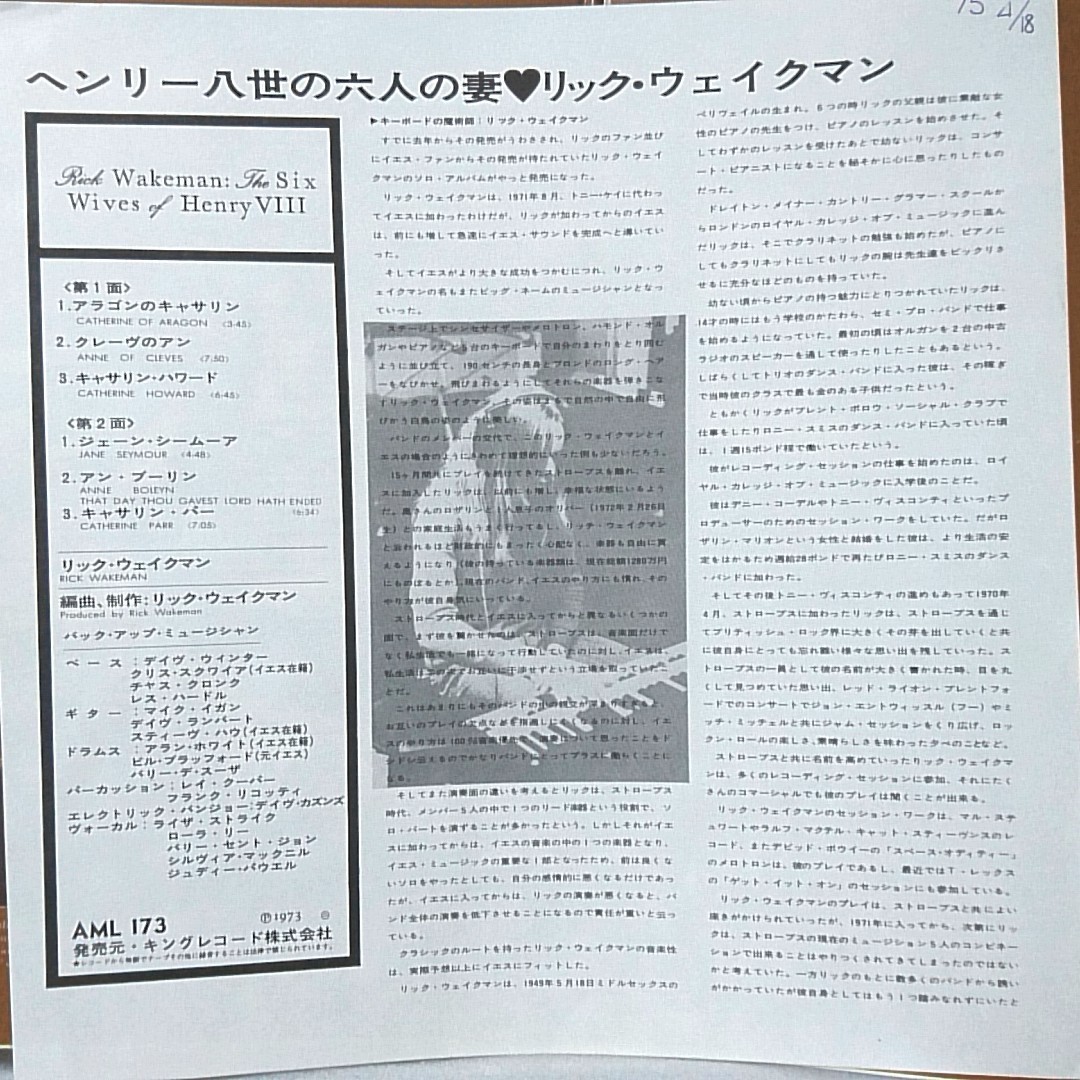 75 4/18
ヘンリー八世の六人の妻♥リック・ウェイクマン
Rick Wakeman: The Six
Wives of Henry VIII
〈第1面〉
1.アラゴンのキャサリン
CATHERINE OF ARAGON 〈3:45〉
2.クレーヴのアン
ANNE OF CLEVES 〈7:50〉
3.キャサリン・ハワード
CATHERINE HOWARD 〈6:45〉
〈第2面〉
1.ジェーン・シームーア
JANE SEYMOUR 〈4:48〉
2.アン・ブーリン
ANNE BOLEYN
THAT DAY THOU GAVEST LORD HATH ENDED
〈6:34〉
3.キャサリン・パー
CATHERINE PARR 〈7:05〉
リック・ウェイクマン
RICK WAKEMAN
編曲、制作：リック・ウェイクマン
Produced by Rick Wakeman
バック・アップ・ミュージシャン
ベース：デイヴ・ウィンター
クリス・スクワイア(イエス在籍)
チャス・クロンク
レス・ハードル
ギター：マイク・イガン
デイヴ・ランバート
スティーヴ・ハウ(イエス在籍)
ドラムス：アラン・ホワイト(イエス在籍)
ビル・ブラッフォード(元イエス)
バリー・デ・スーザ
パーカッション：レイ・クーパー
フランク・リコッティ
エレクトリック・バンジョー：デイヴ・カズンズ
ヴォーカル：ライザ・ストライク
ローラ・リー
バリー・セント・ジョン
シルヴィア・マックニル
ジュディー・パウエル
AML 173
Ⓟ1973
発売元・キングレコード株式会社
★レコードから無断でテープその他に録音することは法律で禁じられています。
▶キーボードの魔術師：リック・ウェイクマン
すでに去年からその発売がうわさされ、リックのファン並び
にイエス・ファンからその発売が待たれていたリック・ウェイ
クマンのソロ・アルバムがやっと発売になった。
リック・ウェイクマンは、1971年8月、トニー・ケイに代わっ
てイエスに加わったわけだが、リックが加わってからのイエス
は、前にも増して急速にイエス・サウンドを完成へと導いてい
った。
そしてイエスがより大きな成功をつかむにつれ、リック・ウ
ェイクマンの名もまたビッグ・ネームのミュージシャンとなっ
ていった。
ステージ上でシンセサイザーやメロトロン、ハモンド・オル
ガンやピアノなど5台のキーボードで自分のまわりをとり囲む
ように並び立て、190センチの長身とブロンドのロング・ヘア
ーをなびかせ、飛びまわるようにしてそれらの楽器を弾きこな
すリック・ウェイクマン、その姿はまるで自然の中で自由に羽
ばたく白鳥の姿のように美しい。
バンドのメンバーの交代で、このリック・ウェイクマンとイ
エスの場合のようにきわめて理想的にいった例も少ないだろう。
15ヶ月間共にプレイを続けてきたストローブスを離れ、イエ
スに加入したリックは、以前にも増し、幸福な状態にいるよう
だ。奥さんのロザリンと1人息子のオリバー(1972年2月26日
生)との家庭生活もうまく行ってるし、リッチ・ウェイクマン
と云われるほど財政的にもまったく心配なく、楽器も自由に買
えるようになり(彼の持っている楽器類は、現在総額1280万円
にものぼるとか)現在のバンド、イエスのやり方にも慣れ、その
やり方が彼自身気にいっている。
ストローブス時代とイエスに入ってからと異なるいくつかの
面で、まず彼を驚かせたのは、ストローブスは、音楽面だけで
なく私生活でも一緒になって行動していたのに対し、イエスは、
私生活はその人でお互いに干渉せずという立場を取っていたこ
とだ。
これはあまりにもそのバンドの中の親交が深まりすぎると、
お互いのプレイの欠点などを指摘しにくくなるのに対し、イエ
スのやり方は100%音楽優先で、演奏について思ったことをド
シドシ云えるのでかなりバンドにとってプラスに働らくことに
なる。
そしてまた演奏面の違いを考えるとリックは、ストローブス
時代、メンバー5人の中で1つのリード楽器という役割で、ソ
ロ・パートを演ずることが多かったという。しかしそれがイエ
スに加わってからは、イエスの音楽の中の1つの楽器となり、
イエス・ミュージックの重要な1部となったため、前は良くな
いソロをやったとしても、自分の感情的に悪くなるだけであっ
たが、イエスに入ってからは、リックの演奏が悪くなると、バ
ンド全体の演奏を低下させることになるので責任が重いと云っ
ている。
クラシックのルートを持ったリック・ウェイクマンの音楽性
は、実際予想以上にイエスにフィットした。
リック・ウェイクマンは、1949年5月18日ミドルセックスの
ペリヴェイルの生まれ。6つの時リックの父親は彼に素敵な女
性のピアノの先生をつけ、ピアノのレッスンを始めさせた。そ
してわずかのレッスンを受けたあとで幼ないリックは、コンサ
ート・ピアニストになることを秘そかに心に思ったりしたもの
だった。
ドレイトン・メイナー・カントリー・グラマー・スクールか
らロンドンのロイヤル・カレッジ・オブ・ミュージックに進ん
だリックは、そこでクラリネットの勉強も始めたが、ピアノに
してもクラリネットにしてもリックの腕は先生達をビックリさ
せるに充分なほどのものを持っていた。
幼ない頃からピアノの持つ魅力にとりつかれていたリックは、
14才の時にはもう学校のかたわら、セミ・プロ・バンドで仕事
を始めるようになっていた。最初の頃はオルガンを2台の中古
ラジオのスピーカーを通して使ったりしたこともあるという。
しばらくしてトリオのダンス・バンドに入った彼は、その稼ぎ
で当時彼のクラスで最も金のある子供だったという。
ともかくリックがブレント・ボロウ・ソーシャル・クラブで
仕事をしたりロニー・スミスのダンス・バンドに入っていた頃
は、1週15ポンド程で働いていたという。
彼がレコーディング・セッションの仕事を始めたのは、ロイ
ヤル・カレッジ・オブ・ミュージックに入学後のことだ。
彼はデニー・コーデルやトニー・ヴィスコンティといったプ
ロデューサーのためのセッション・ワークをしていた。だがロ
ザリン・マリオンという女性と結婚をした彼は、より生活の安
定をはかるため週給28ポンドで再たびロニー・スミスのダンス
・バンドに加わった。
そしてその後トニー・ヴィスコンティの進めもあって1970年
4月、ストローブスに加わったリックは、ストローブスを通じ
てブリティッシュ・ロック界に大きくその芽を出していくと共
に彼自身にとっても忘れ難い様々な思い出を残していった。ス
トローブスの一員として彼の名前が大きく書かれた時、目を丸
くして見つめていた思い出、レッド・ライオン・ブレントフォ
ードでのコンサートでジョン・エントウィッスル(フー)やミ
ッチ・ミッチェルと共にジャム・セッションをくり広げ、ロッ
クン・ロールの楽しさ、素晴らしさを味わった夕べのことなど。
ストローブスと共に名前を高めていったリック・ウェイクマ
ンは、多くのレコーディング・セッションに参加、それにたく
さんのコマーシャルでも彼のプレイは聞くことが出来る。
リック・ウェイクマンのセッション・ワークは、マル・ステ
ュワートやラルフ・マクテル・キャット・スティーヴンスのレ
コード、またデビッド・ボウイーの「スペース・オディティー」
のメロトロンは、彼のプレイであるし、最近ではT・レックス
の「ゲット・イット・オン」のセッションにも参加している。
リック・ウェイクマンのプレイは、ストローブスと共によい
磨きがかけられていたが、1971年に入ってから、次第にリッ
クは、ストローブスの現在のミュージシャン5人のコンビネー
ションで出来ることはやりつくされてきてしまったのではない
かと考えていた。一方リックのもとに数多くのバンドから誘い
がかかっていたが彼自身としてはもう1つ踏みなれずにいたと